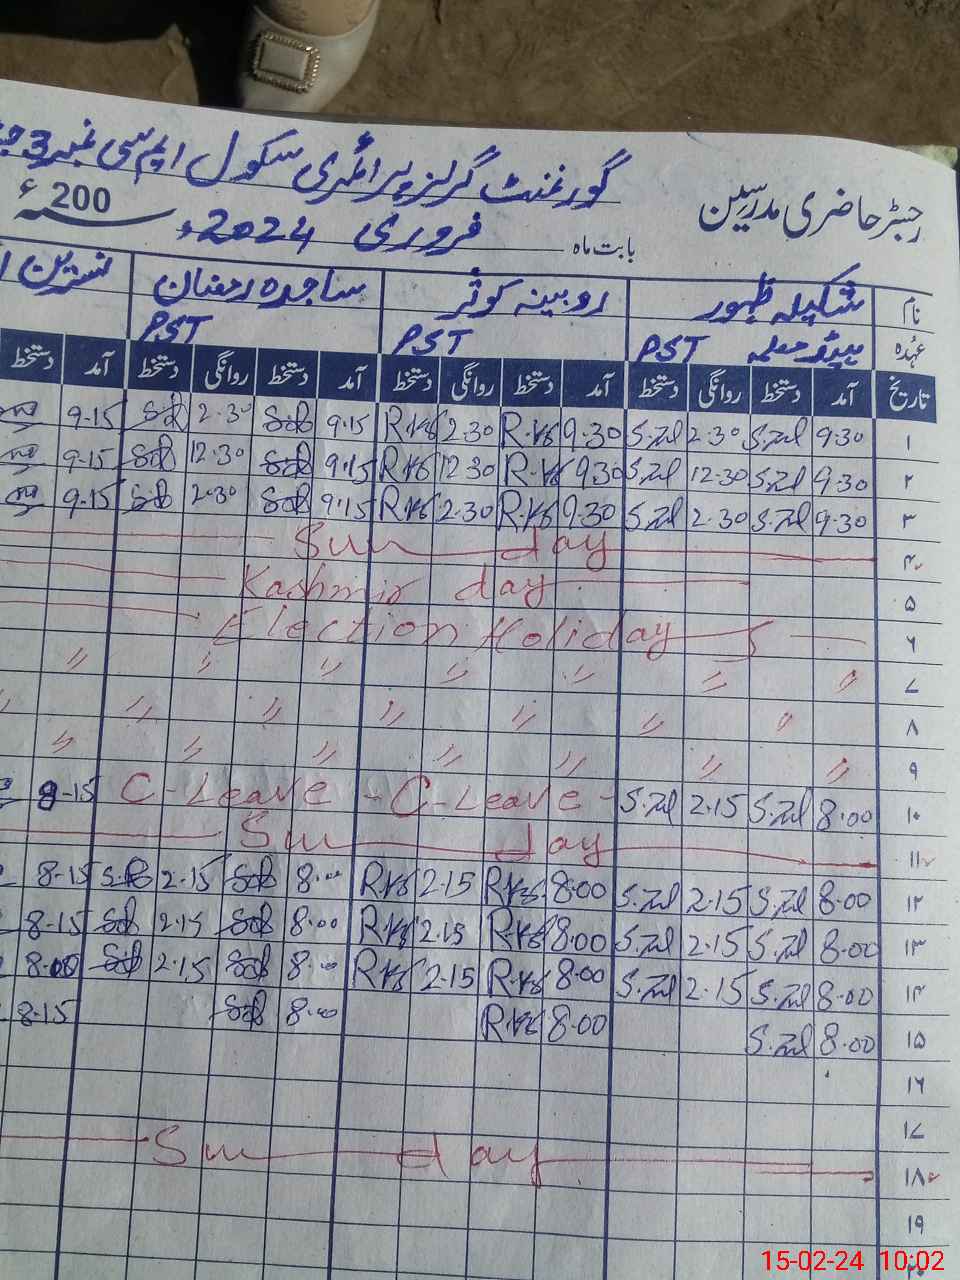 رجسٹر حاضری مدرسین گورنمنٹ گرلز پرائمری سکول ایم سی نمبر 3
بابت ماہ فروری 2024ء 200ء
نام شکیلہ ظہور روبینہ کوثر ساجدہ رمضان نسترین
عہدہ ہیڈ معلمہ PST PST PST
تاریخ آمد دستخط روانگی دستخط آمد دستخط روانگی دستخط آمد دستخط روانگی دستخط آمد دستخط
۱ 9.30 S.Zul 2.30 S.Zul 9.30 2.30 9.15 2.30 9-15
۲ 9.30 S.Zul 12.30 S.Zul 9.30 12.30 9.15 12.30 9-15
۳ 9.30 S.Zul 2.30 S.Zul 9.30 2.30 9.15 2.30 9-15
۴ Sun day
۵ Kashmir day
۶ Election Holiday
۷ " " " " " " "
۸ " " " " " " "
۹ " " " " " " "
۱۰ 8.00 S.Zul 2.15 S.Zul C-Leave - C-Leave - 8-15
۱۱ Sun day
۱۲ 8.00 S.Zul 2.15 S.Zul 8.00 2.15 8.00 2.15 8-15
۱۳ 8.00 S.Zul 2.15 S.Zul 8.00 2.15 8.00 2.15 8-15
۱۴ 8.00 S.Zul 2.15 S.Zul 8.00 2.15 8.00 2.15 8.00
۱۵ 8.00 S.Zul 8.00 8.00 8.15
۱۶
۱۷
۱۸ Sun day
۱۹
۲۰
15-02-24 10:02